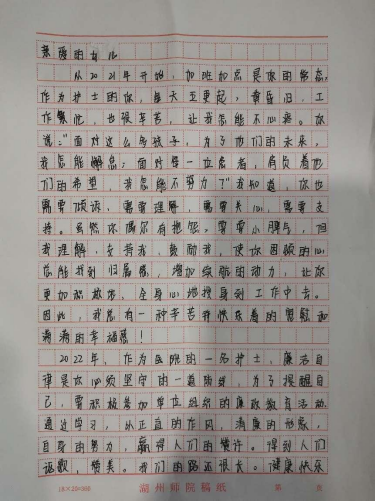 亲爱的女儿
从2021年开始,加班加点是你的常态,
作为护士的你,每天五更起,黄昏归,工
作繁忙,也很辛苦,让我怎能不心疼。你
说:"面对这么多孩子,为了他们的未来,
我怎能懈怠;面对每一位患者,肩负着他
们的希望,我怎能不努力了"我知道,你也
需要倾诉、需要理解,需要关心、需要支
持。虽然你偶尔有抱怨,耍耍小脾气,但
我理解、支持我、鼓励我,使你困顿的心
总能找到归属感,增加续航的动力,让你
更加积极 全身心地投身到工作中去。
因此,我总有一种辛苦并快乐着的 和
满满的幸福感!
2022年,作为医院的一名护士,廉洁自
律是你必须坚守的一道防线,为了提醒自
己,要积极参加单位组织的廉政教育活动
通过学习,以正直的作风,清廉的 ,
自身的努力,赢得人们的赞许。得到人们
讴歌,赞美。我们的路还很长。健康快乐
18×20=360 湖州师院稿纸 第 页